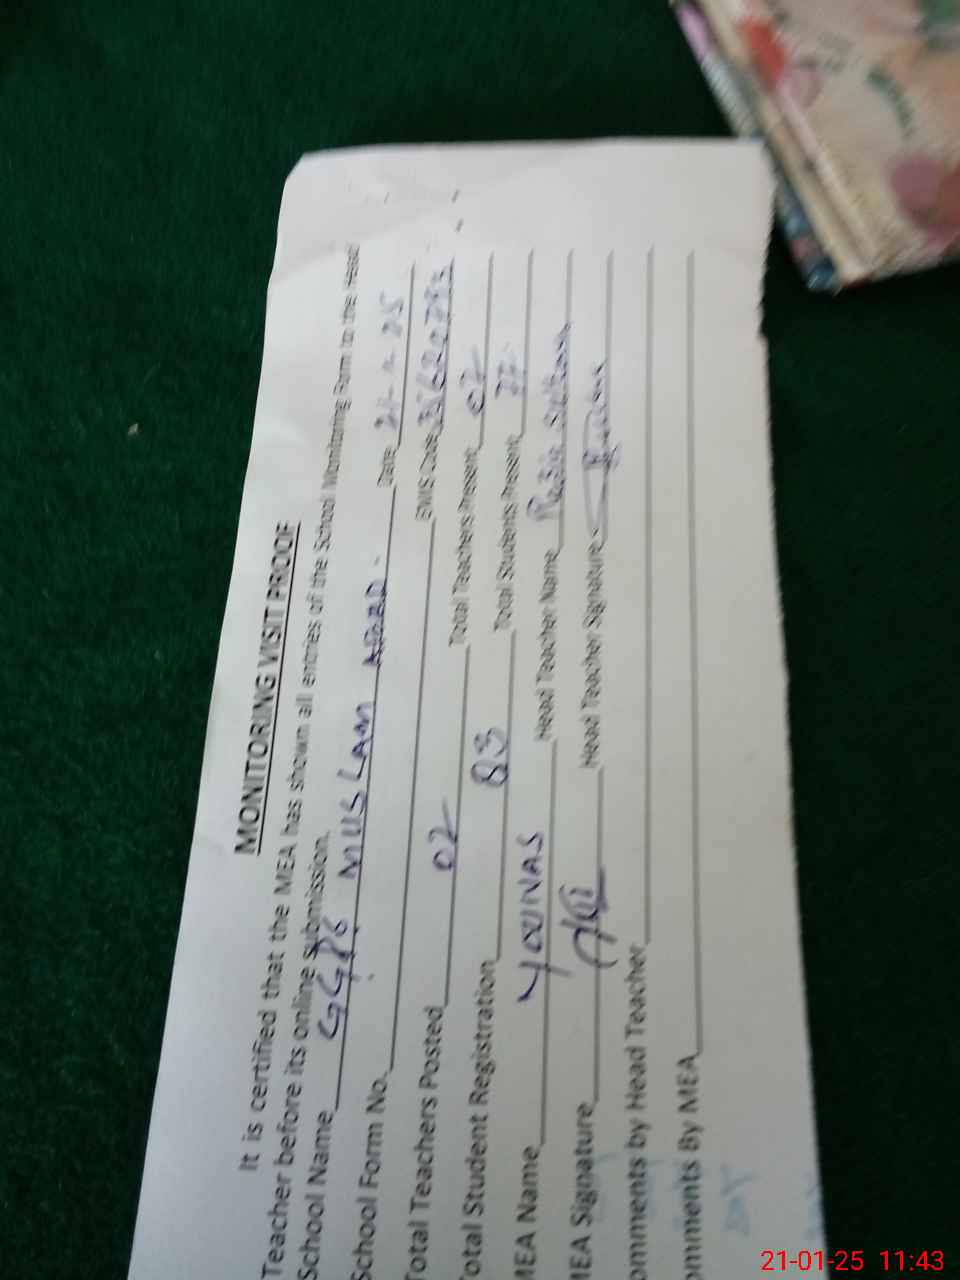 MONITORING VISIT PROOF
It is certified that the MEA has shown all entries of the School Monitoring Form to the Head
Teacher before its online submission.
School Name GGPS MUSLAM ABAD. Date 21-1-25
School Form No. EMIS Code
Total Teachers Posted 02 Total Teachers Present 02
otal Student Registration 83 Total Students Present 77
MEA Name YOUNAS Head Teacher Name Razia Sultana
MEA Signature Head Teacher Signature
omments by Head Teacher
omments By MEA
21-01-25 11:43